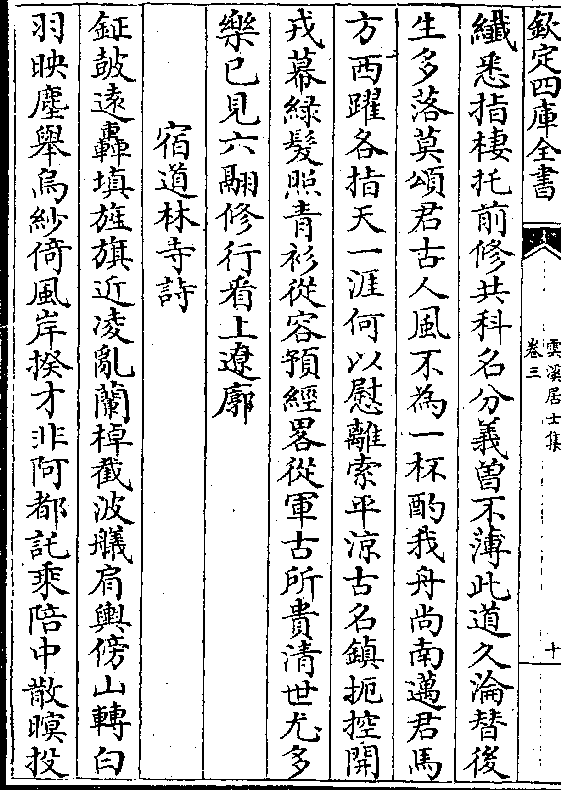 欽定四庫全書
雲溪居士集
卷三
十
纖悉指棲托前修共科名分義曾不薄此道久淪替後
生多落莫頌君古人風不為一杯酌我舟尚南邁君馬
方西躍各指天一涯何以慰離索平涼古名鎮扼控開
戎幕緑髮照青衫從容預經畧從軍古所貴清世尤多
樂已見六翮修行看上遼廓
宿道林寺詩
鉦鼓遠轟填旌旗近凌亂蘭棹截波艤肩輿傍山轉白
羽映塵舉烏紗倚風岸揆才非阿都託乘陪中散暝投